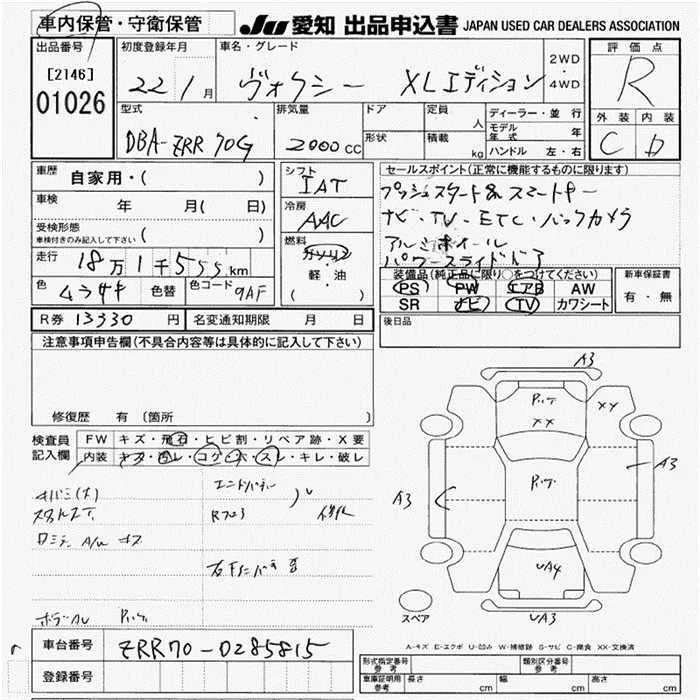 車内保管・守衛保管
JU 愛知 出品申込書 JAPAN USED CAR DEALERS ASSOCIATION
出品番号
[2146]
01026
初度登録年月
22 1 月
車名・グレード
ヴォクシー XLエディション
2WD
・
4WD
評価点
R
外装 内装
C D
型式
DBA-ZRR70G
排気量
2000 CC
ドア
形状
定員 人
積載 kg
ディーラー・並行
モデル年式 年
ハンドル 左・右
車歴 自家用・( )
車検 年 月( 日)
受検形態
車検付きのみ記入して下さい ( )
走行 18万1千555km
色 色替 色コード 9AF
シフト
IAT
冷房
AAC
燃料
ガソリン
軽・油
( )
セールスポイント(正常に機能するものに限ります)
プッシュスタート& スマートキー
ナビ・TV・ETC・バックカメラ
アルミホイール
パワースライドドア
装備品(純正品に限り○をつけてください)
PS PW エアB AW
SR ナビ TV カワシート
新車保証書
有・無
R券 13330 円
名変通知期限 月 日
後日品
注意事項申告欄(不具合内容等は具体的に記入して下さい)
修復歴 有 (箇所 )
検査員記入欄
FW キズ・飛石・ヒビ割・リペア跡・X要
内装 キズ・汚レ・コゲ・穴・スレ・キレ・破レ
A3
XX
XX
A3
A3
UA4
UA3
スペア
A-キズ E-エクボ U-凹み W-補修跡 S-サビ C-腐食 XX-交換済
車台番号 ZRR70-0285815
登録番号
形式指定番号 参考
類別区分番号 参考
車庫証明用 参考 長さ cm 幅 cm 高さ cm